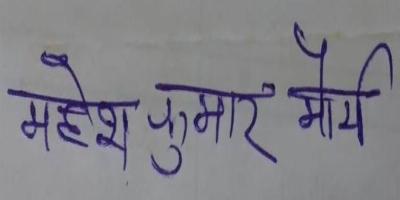 महेश कुमार मौर्य